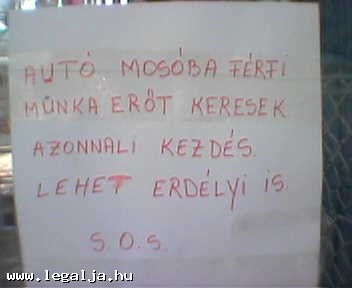 AUTÓ MOSÓBA FÉRFI
MŰNKA ERŐT KERESEK
AZONNALI KEZDÉS.
LEHET ERDÉLYI IS.
S.O.S.
www.legalja.hu